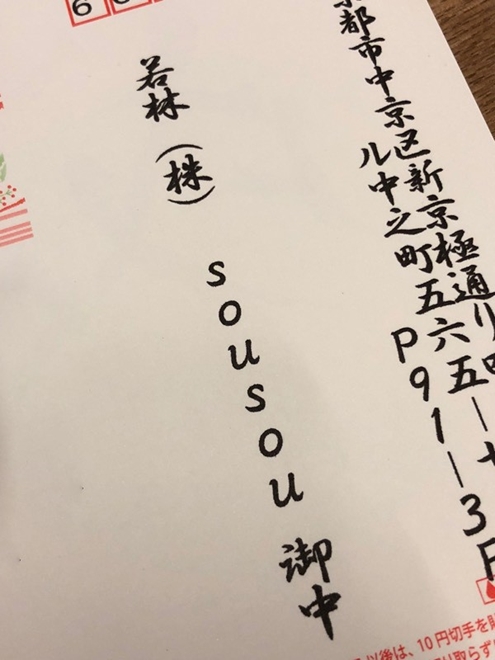 6
京都市中京区新京極通り
ル中之町五六五ー十
P91ー3F
若林(株)
sousou御中
以後は、10円切手を
取らず